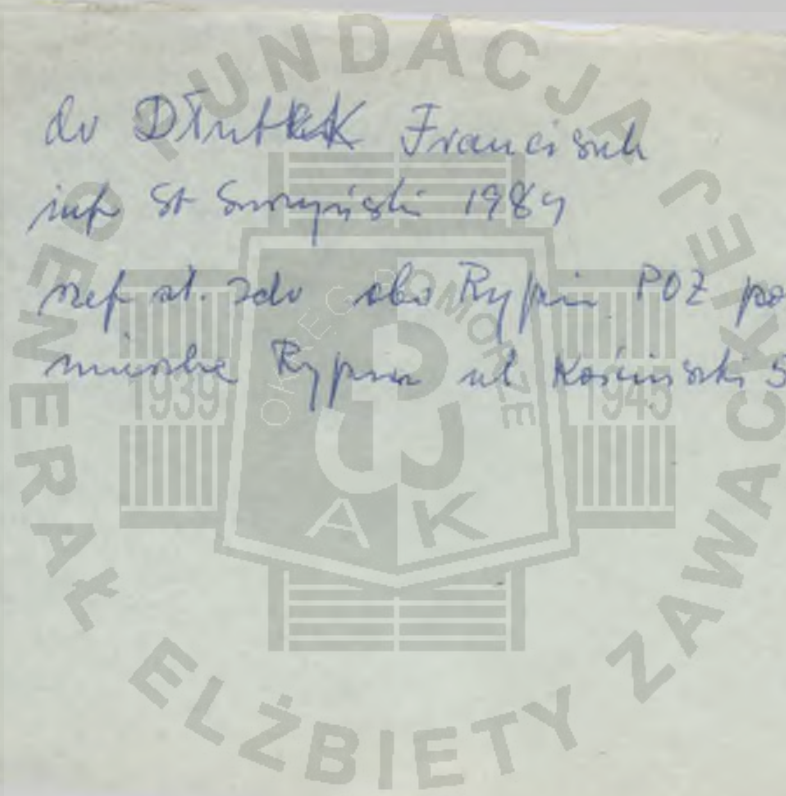 dr DŁutEK Franciszek
inf St Suszyński 1989
szef sł. zdr obw Rypin POZ po
mieszka Rypin ul Kościuszki 5
FUNDACJA
GENERAŁ ELŻBIETY ZAWACKIEJ
OKRĘG POMORZE
1939
1945
AK